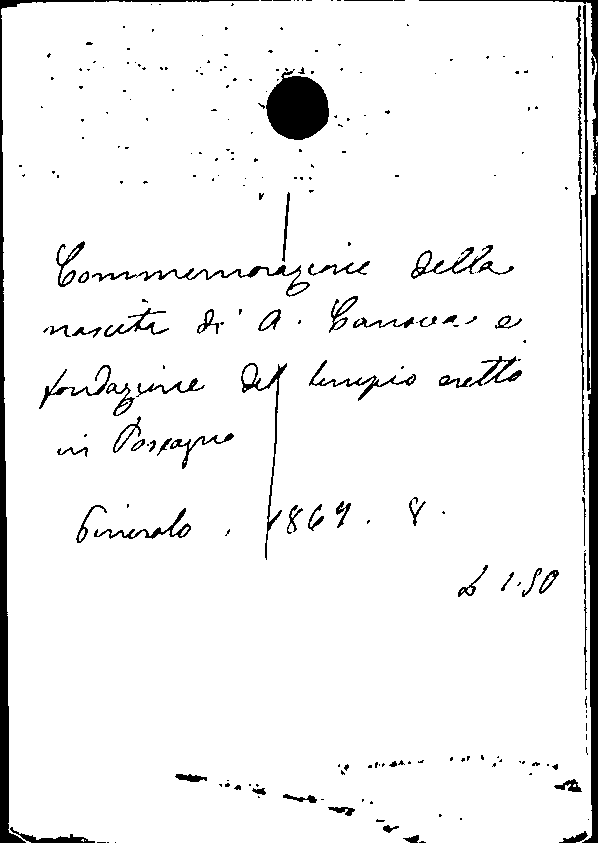 Commemorazione della
nascita di A. Canova e
fondazione del tempio eretto
in Possagno
1869. 8.
L 1.50